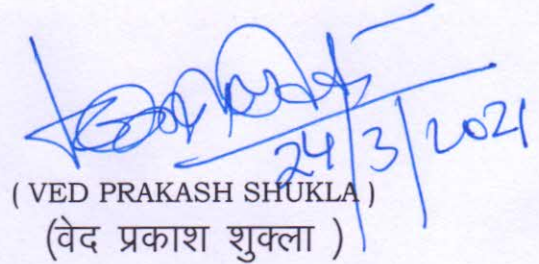 24/3/2021
( VED PRAKASH SHUKLA )
(वेद प्रकाश शुक्ला )